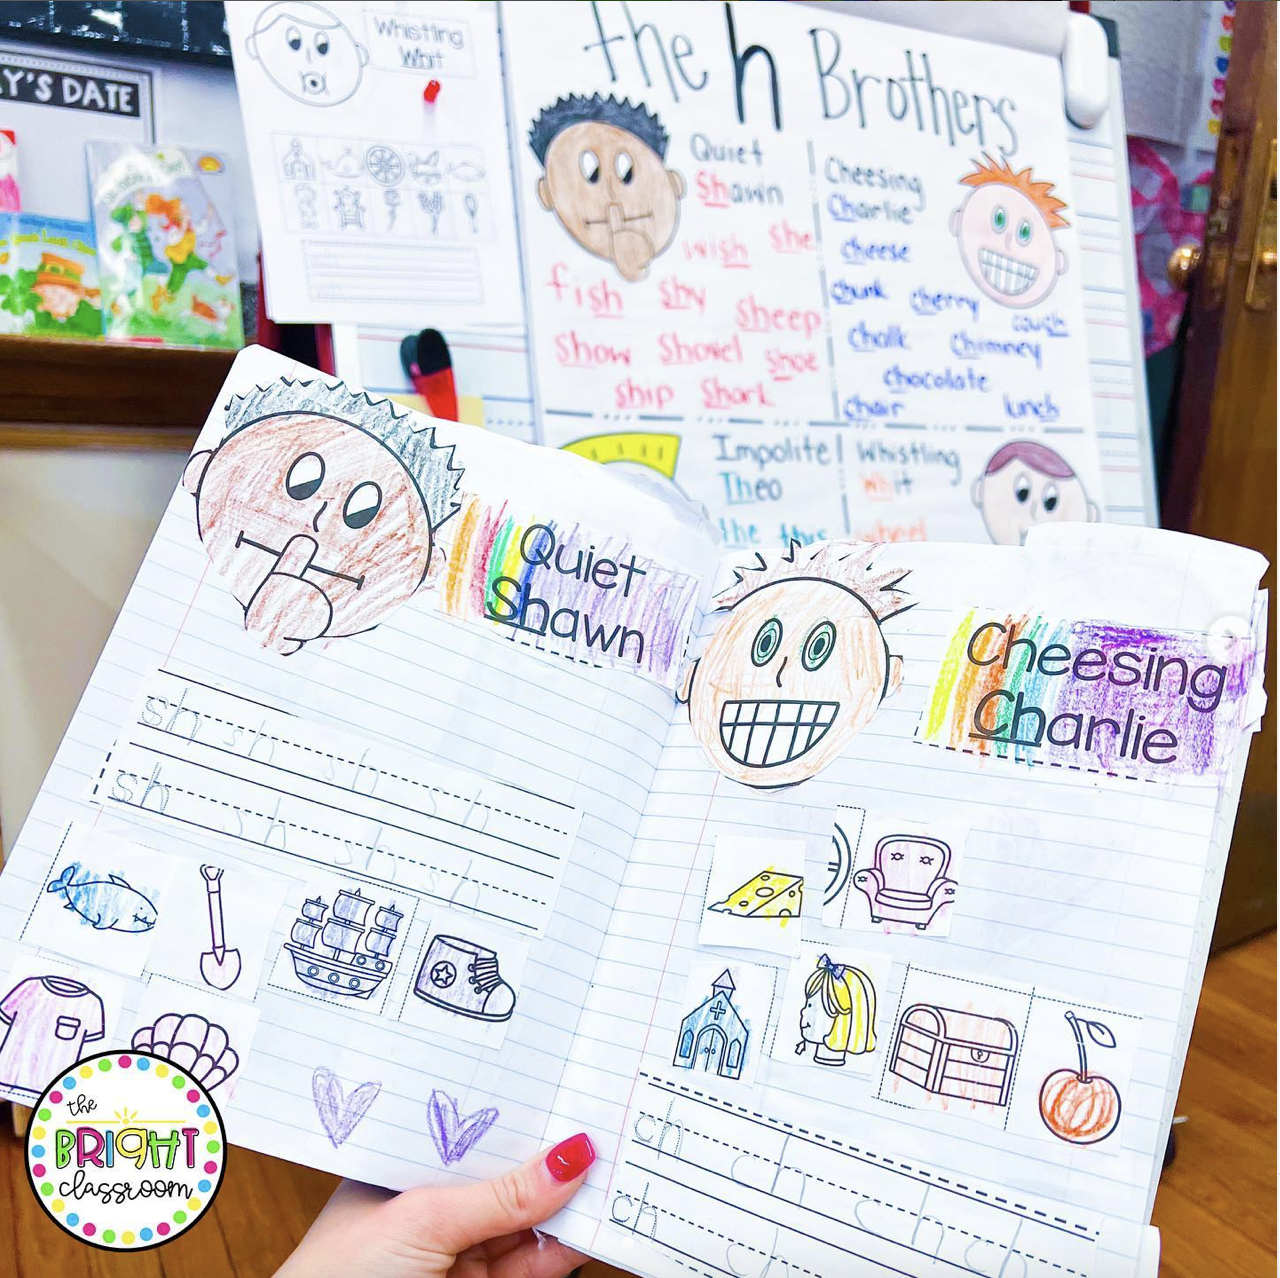 Y'S DATE
Whistling
Whit
the h Brothers
Quiet
Shawn
wish she
fish shy sheep
show Shovel shoe
ship Shark
Cheesing
Charlie
cheese
chunk cherry couch
Chalk Chimney
chocolate
chair lunch
Impolite
Theo
the this
Whistling
Whit
wheel
Quiet
Shawn
sh sh sh sh
sh sh sh sh
Cheesing
Charlie
ch ch ch ch
ch ch
the
BRIGHT
classroom